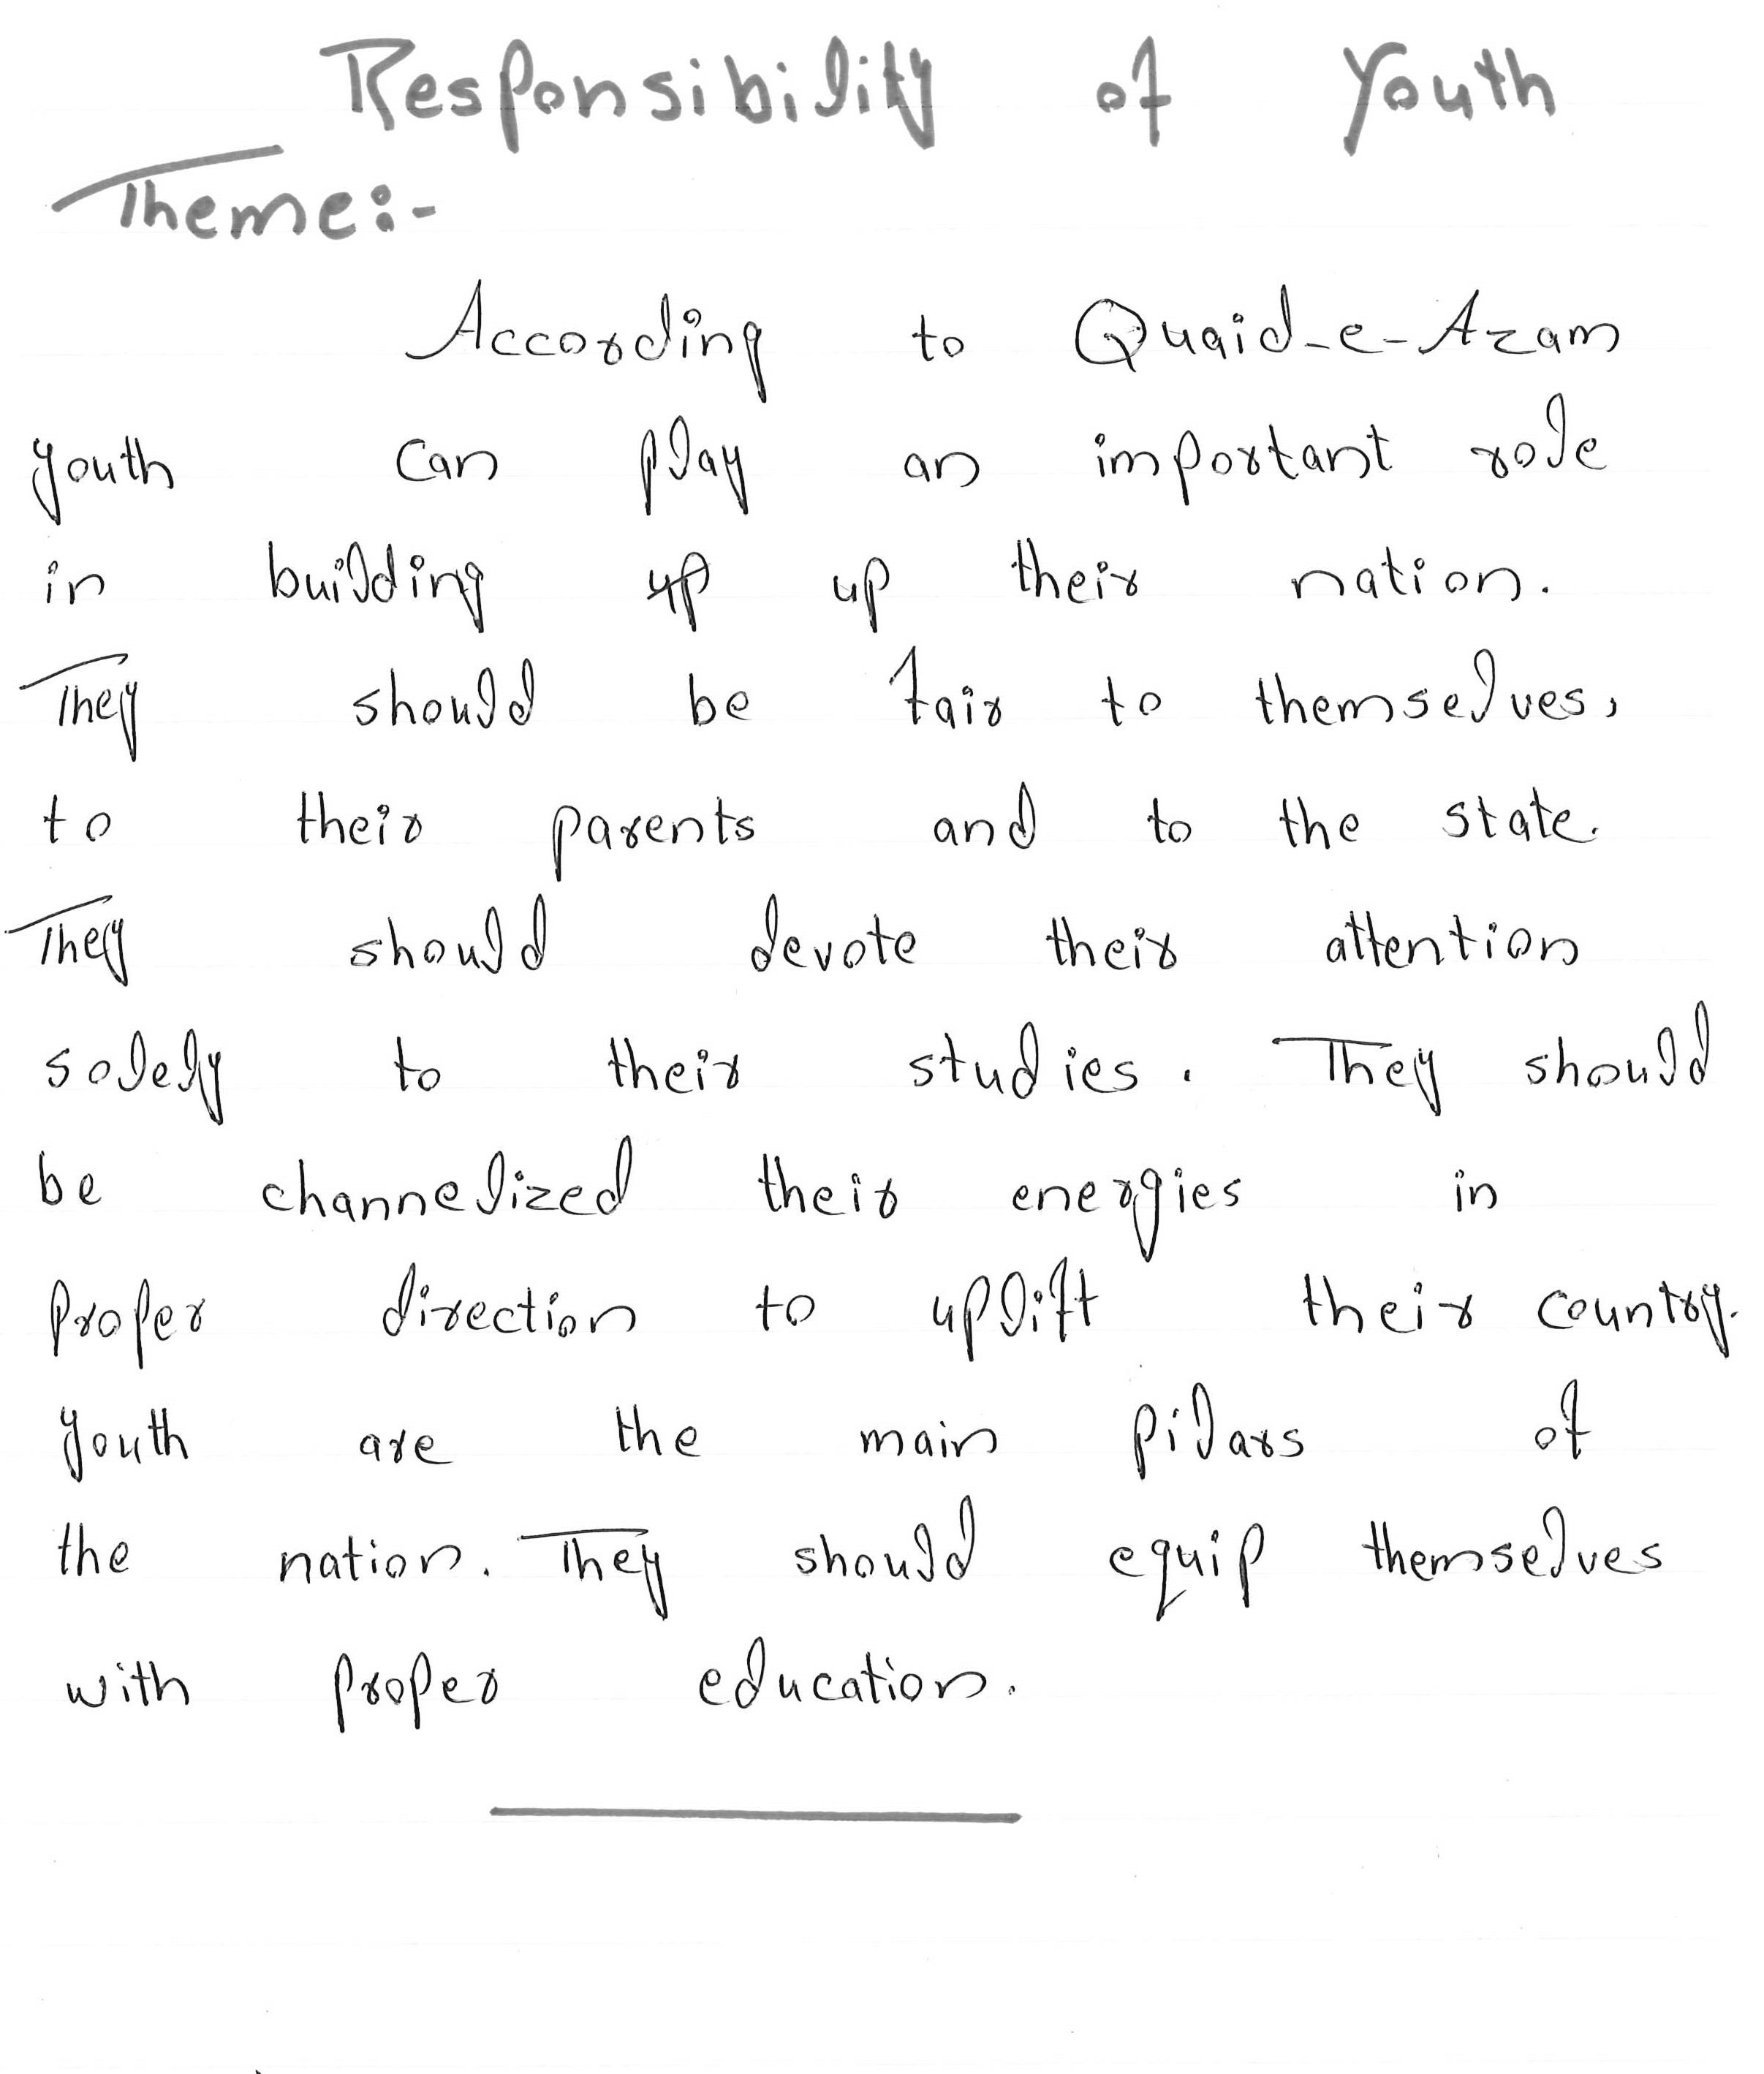 Responsibility of Youth
Theme:-
According to Quaid-e-Azam
youth can play an important role
in building up up their nation.
They should be fair to themselves,
to their parents and to the state.
They should devote their attention
solely to their studies. They should
be channelized their energies in
proper direction to uplift their country.
Youth are the main pilars of
the nation. They should equip themselves
with proper education.